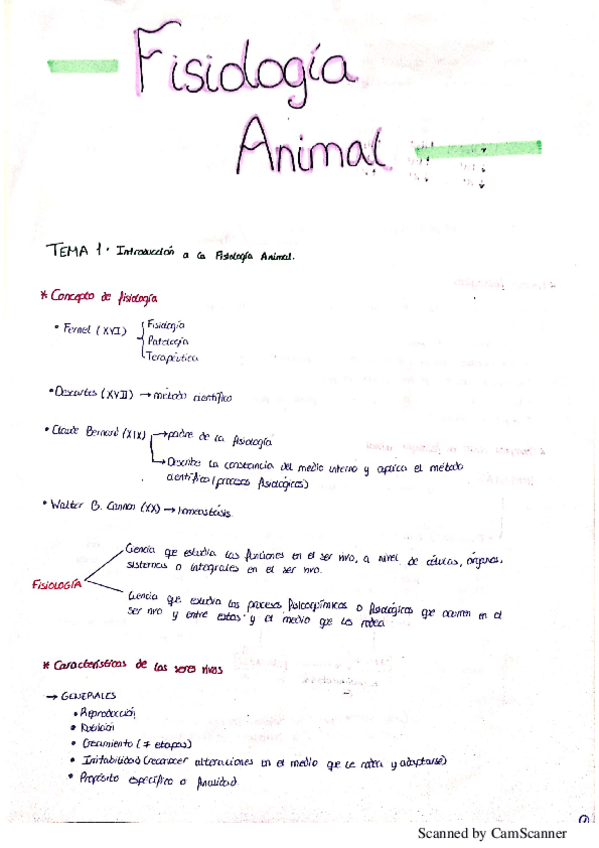 Fisiología
Animal
TEMA 1. Introducción a la Fisiología Animal.
* Concepto de fisiología
• Fernel (XVI) { Fisiología
Patología
Terapéutica
• Descartes (XVII) → método científico
• Claude Bernard (XIX) → padre de la fisiología
→ Describe la constancia del medio interno y aplica el método
científico (procesos fisiológicos)
• Walter B. Cannon (XX) → Homeostásis
Ciencia que estudia las funciones en el ser vivo, a nivel de células, órganos,
sistemas o integrales en el ser vivo.
FISIOLOGÍA
Ciencia que estudia los procesos fisicoquímicos o fisiológicos que ocurren en el
ser vivo y entre estos y el medio que los rodea
* Características de los seres vivos
→ GENERALES
• Reproducción
• Nutrición
• Crecimiento (≠ etapas)
• Irritabilidad (reconocer alteraciones en el medio que le rodea y adaptarse)
• Propósito específico o finalidad
1
Scanned by CamScanner